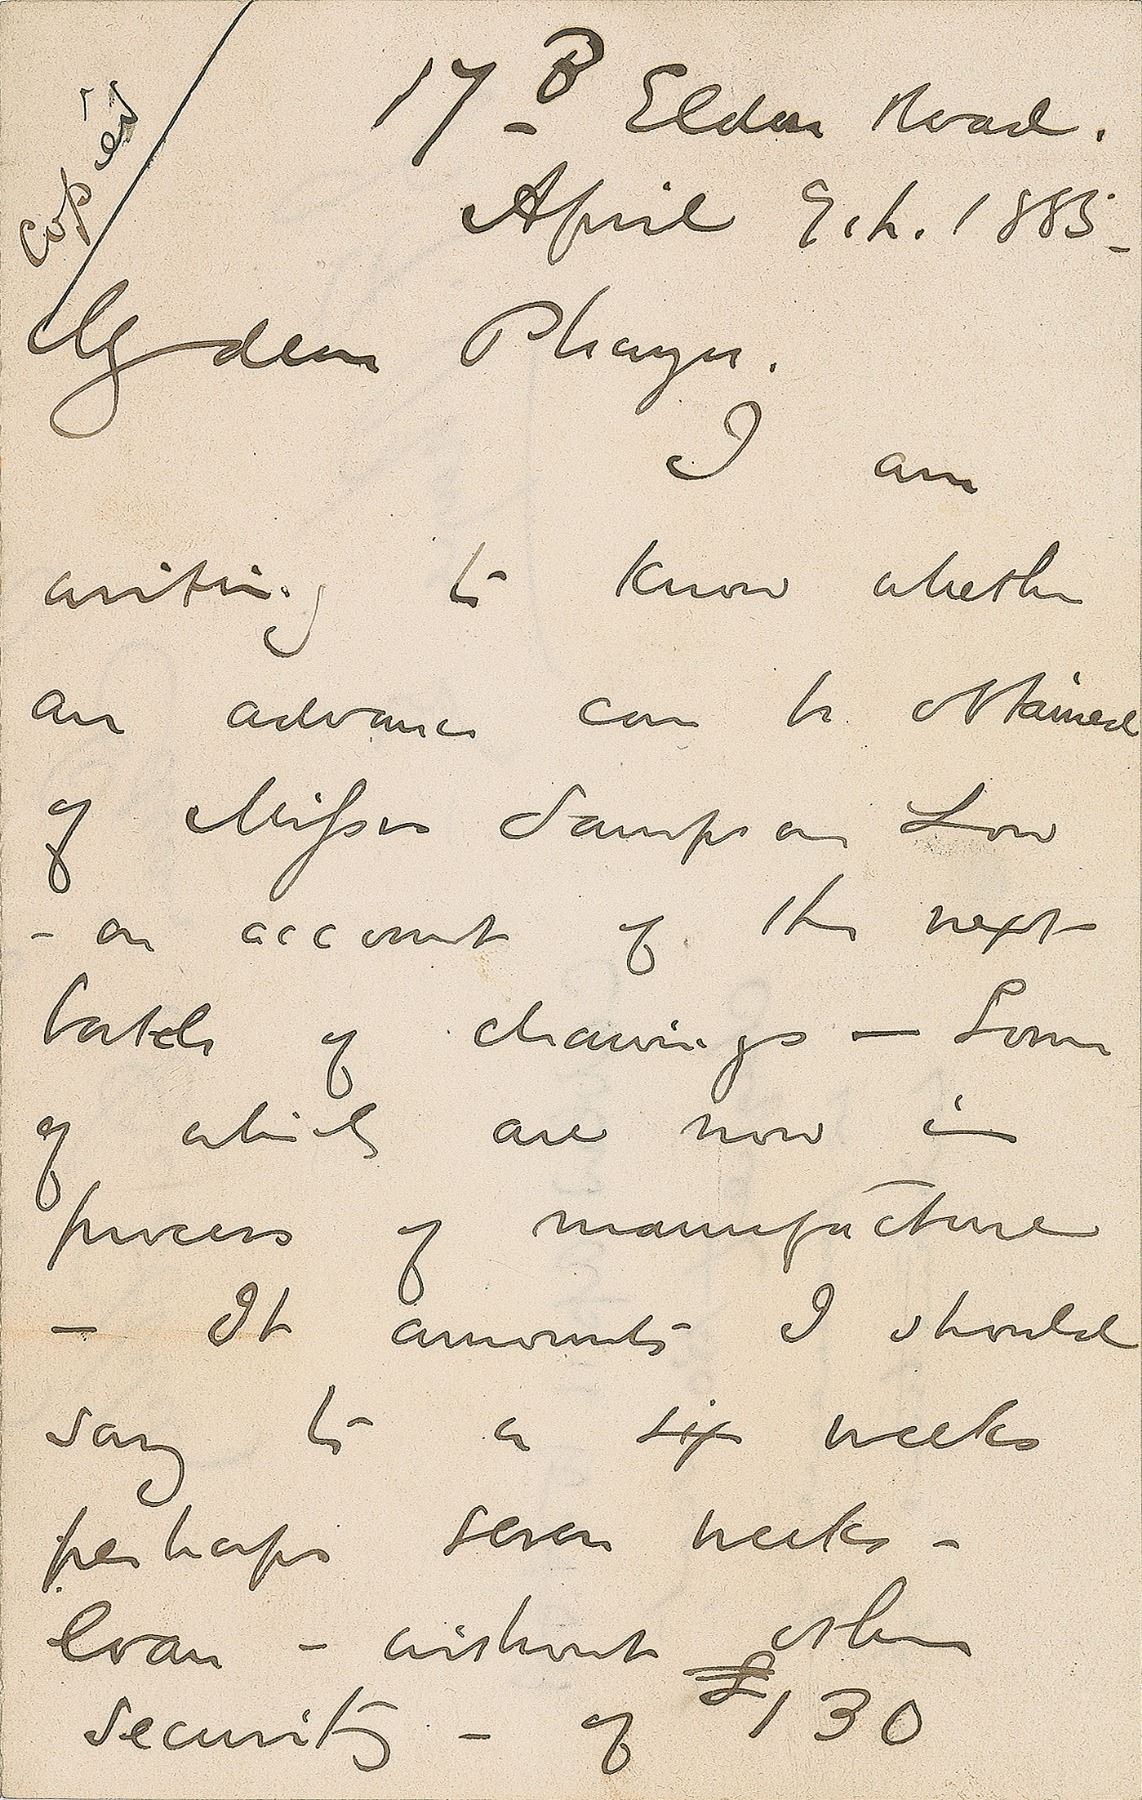 Copied
17B Eldon Road.
April 9th. 1885
My dear Phayre.
I am
writing to know whether
an advance can be obtained
of Messrs Sampson Low
- on account of the next
batch of drawings — Some
of which are now in
process of manufacture
— It amounts I should
say to a six weeks
perhaps seven weeks -
loan - without other
security - of £130